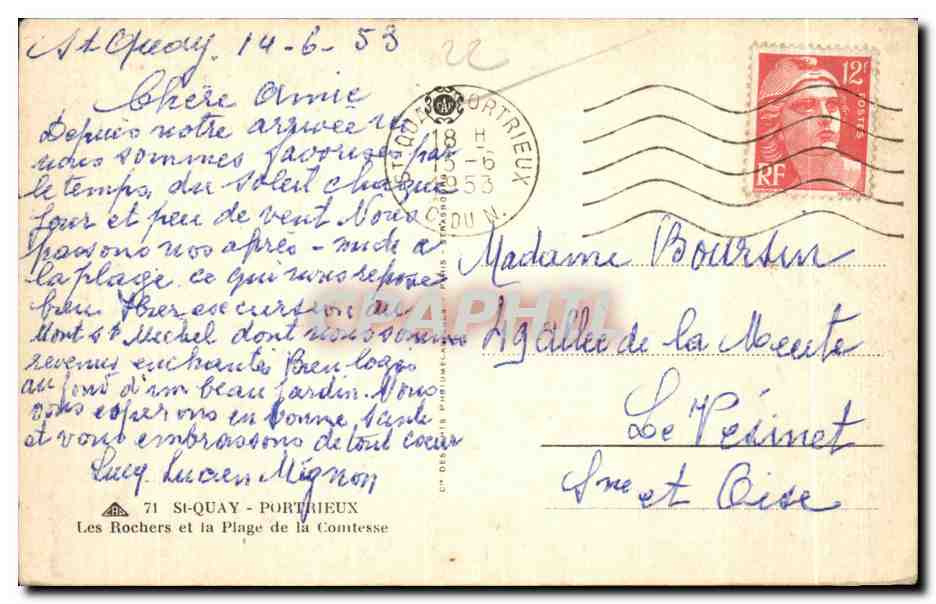 St Quay 14-6-53
22
Chère Amie
Depuis notre arrivée ici
nous sommes favorisé par
le temps, du soleil chaque
jour et peu de vent Nous
passons nos après-midi à
la plage ce qui nous repose
bien Hier excursion au
Mont St Michel dont nous sommes
revenus enchantés Bien logés
au fond d'un beau jardin. Nous
vous espérons en bonne santé
et vous embrassons de tout cœur
Lucien Mignon
71 St-QUAY - PORTRIEUX
Les Rochers et la Plage de la Comtesse
St QUAY PORTRIEUX
18 H
-6
1953
C. DU N.
12F
POSTES
RF
Madame Boursin
49 allée de la Meute
Le Vésinet
Sne et Oise
CAPHTL